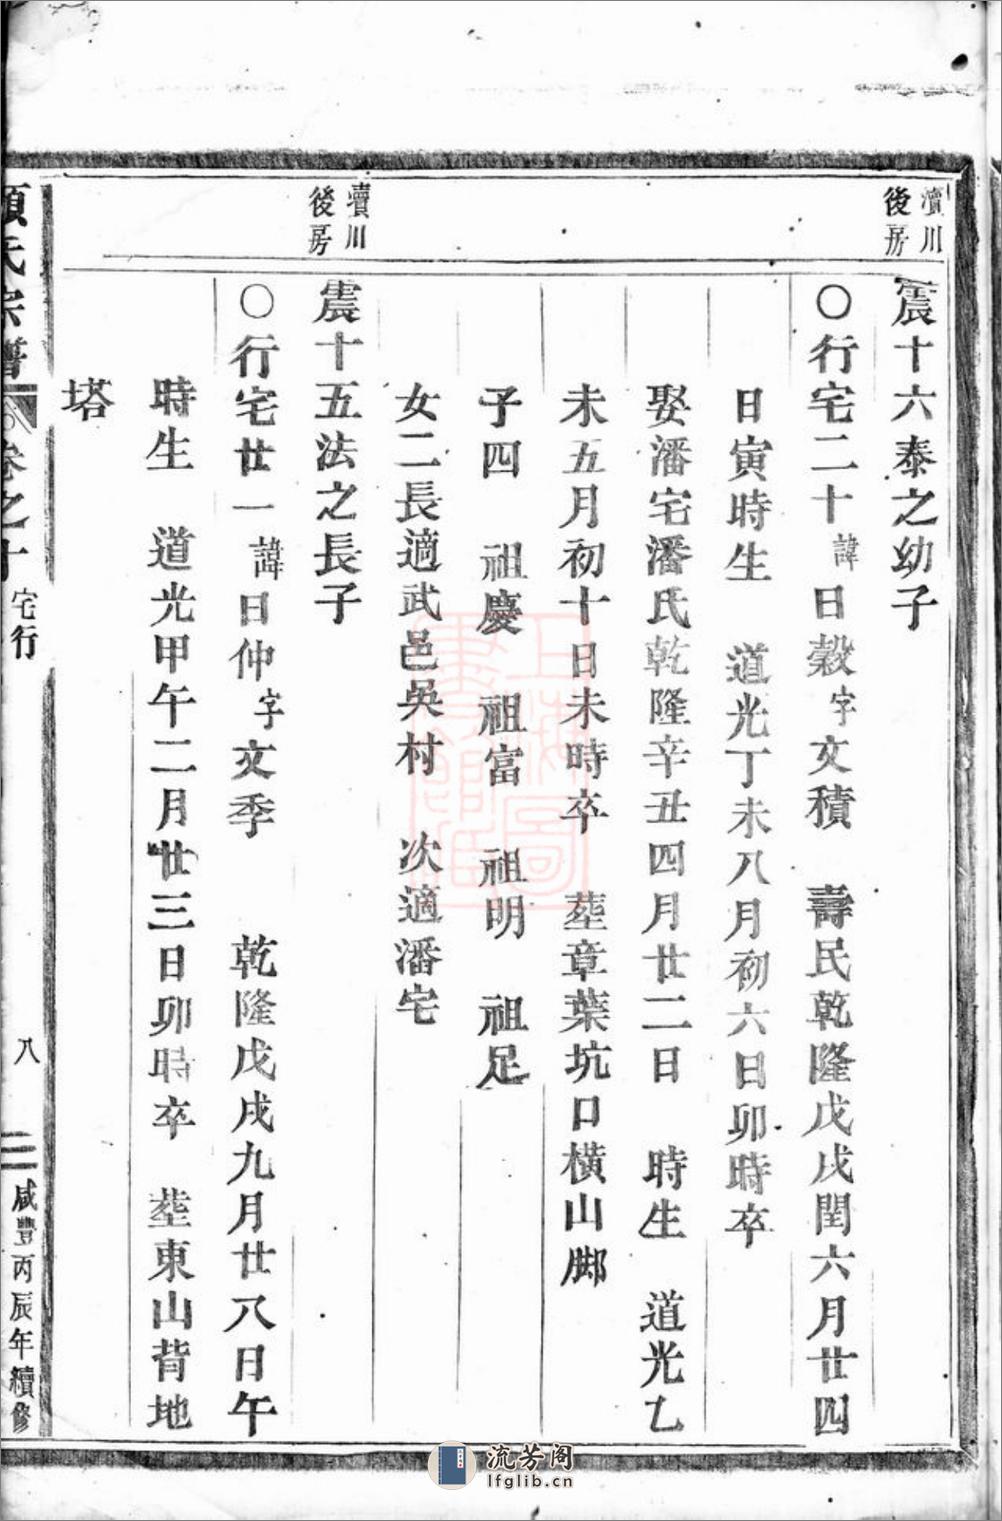 瀆川
後房
震十六泰之幼子
〇行宅二十諱日榖字文積　壽民乾隆戊戌閏六月廿四
日寅時生　道光丁未八月初六日卯時卒
娶潘宅潘氏乾隆辛丑四月廿二日　時生　道光乙
未五月初十日未時卒　塟章葉坑口橫山脚
子四　祖慶　祖富　祖明　祖足
女二長適武邑吳村　次適潘宅
瀆川
後房
震十五法之長子
〇行宅廿一諱日仲字文季　乾隆戊戌九月廿八日午
時生　道光甲午二月廿三日卯時卒　塟東山背地
塔
項氏宗譜　卷之十　宅行　八　咸豐丙辰年續修
上海圖書館藏
流芳阁
lfglib.cn